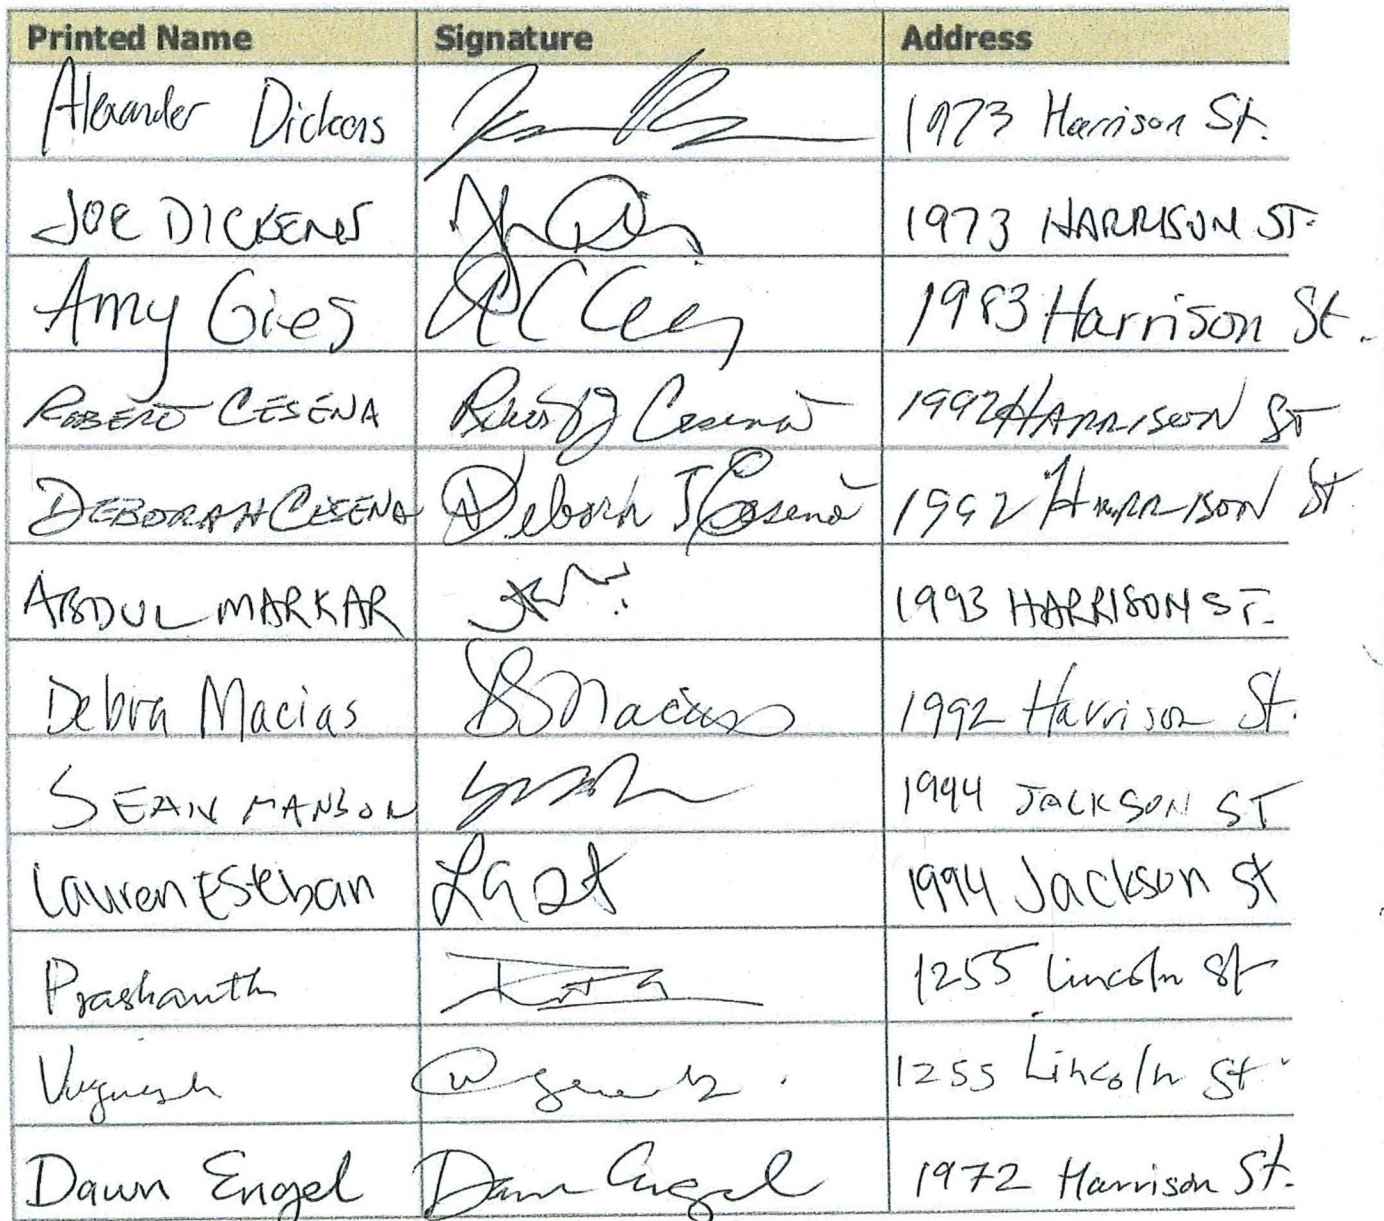 Printed Name Signature Address
Alexander Dickens 1973 Harrison St.
JOE DICKENS 1973 HARRISON ST.
Amy Gies 1983 Harrison St.
ROBERT CESENA Cesena 1992 HARRISON ST
DEBORAH CESENA Deborah J Cesena 1992 HARRISON St.
ABDUL MARKAR 1993 HARRISON ST.
Debra Macias Macias 1992 Harrison St.
SEAN MANSON 1994 JACKSON ST
Lauren Esteban 1994 Jackson St
Prashanth 1255 Lincoln St
1255 Lincoln St
Dawn Engel Dawn Engel 1972 Harrison St.